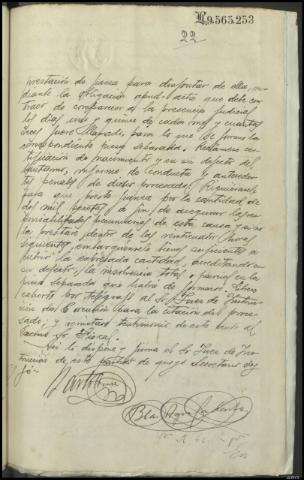 L.9.565.253
22
prestación de fianza para disfrutar de ella, me-
diante la obligación apud acta que debe con-
traer de comparecer a la presencia judicial
los días uno y quince de cada mes y cuantas
veces fuere llamado, para lo que se forme la
correspondiente pieza separada. Reclámese cer-
tificación de nacimiento y en su defecto del
bautismo, informe de conducta y anteceden-
tes penales de dicho procesado. Requiérasele
para que preste fianza por la cantidad de
dos mil pesetas a fin de asegurar las res-
ponsabilidades pecuniarias de esta causa y si no
la prestase dentro de las veinticuatro horas
siguientes, embárguensele bienes suficientes a
cubrir la expresada cantidad, acreditándose
en defecto la insolvencia total o parcial en la
pieza separada que habrá de formarse. Líbrese
exhorto por telégrafo al Sr. Juez de Instruc-
ción de para la citación del proce-
sado, y remítase testimonio de este auto al
Excmo. Sr. Fiscal.
Así lo dispone y firma el Sr. Juez de Ins-
trucción de este partido de que yo Secretario doy
fé=